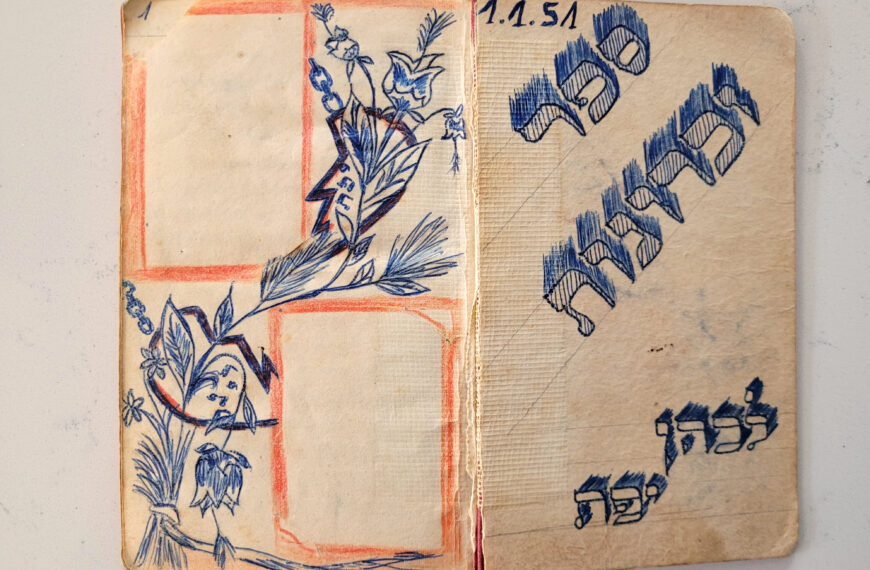 1.1.51
ספר
זכרונות
לכהן
יפה
1